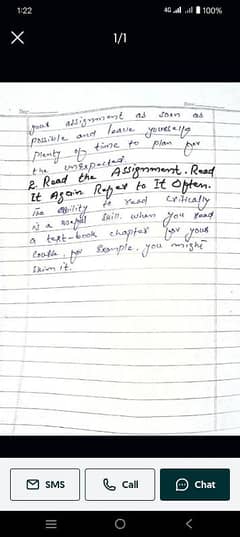 1:22
4G
100%
1/1
your assignment as soon as
possible and leave yourself
plenty of time to plan for
the unexpected.
2. Read the Assignment. Read
It Again Refer to It Often.
The ability to read critically
is a useful skill. when you read
a text-book chapter for your
course, for Example, you might
skim it.
SMS
Call
Chat